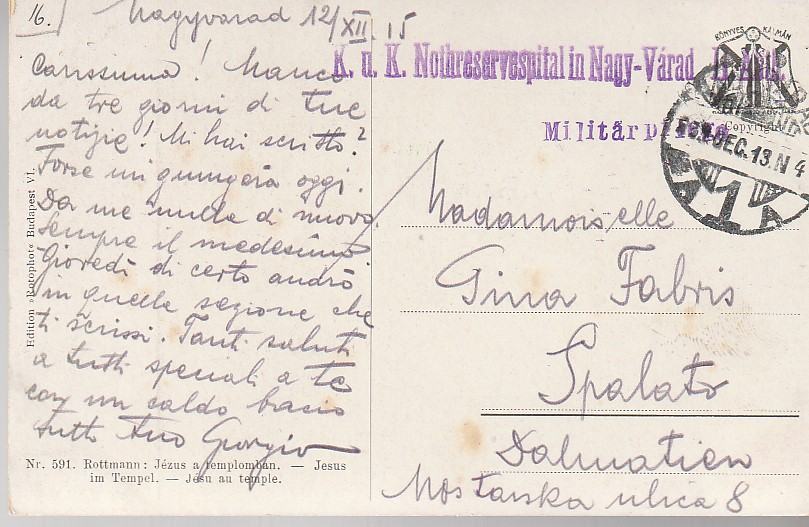 16.
Nagyvarad 12/XII. 15
Carissima! Manco
da tre giorni di tue
notizie! Mi hai scritto?
Forse mi giungerà oggi.
Da me nulla di nuovo.
Sempre il medesimo
Giovedì di certo andrò
in quella sezione che
ti scrissi. Tanti saluti
a tutti speciali a te
con un caldo bacio
tutto tuo Giorgio
K. u. K. Nothreservespital in Nagy-Várad
Militärpflege
KÖNYVES KÁLMÁN
Copyright
DEC. 13. N 4
1
A
Madamoiselle
Gina Fabris
Spalato
Dalmatien
Mostarska ulica 8
Edition »Rotophot« Budapest VI.
Nr. 591. Rottmann: Jézus a templomban. — Jesus
im Tempel. — Jésu au temple.